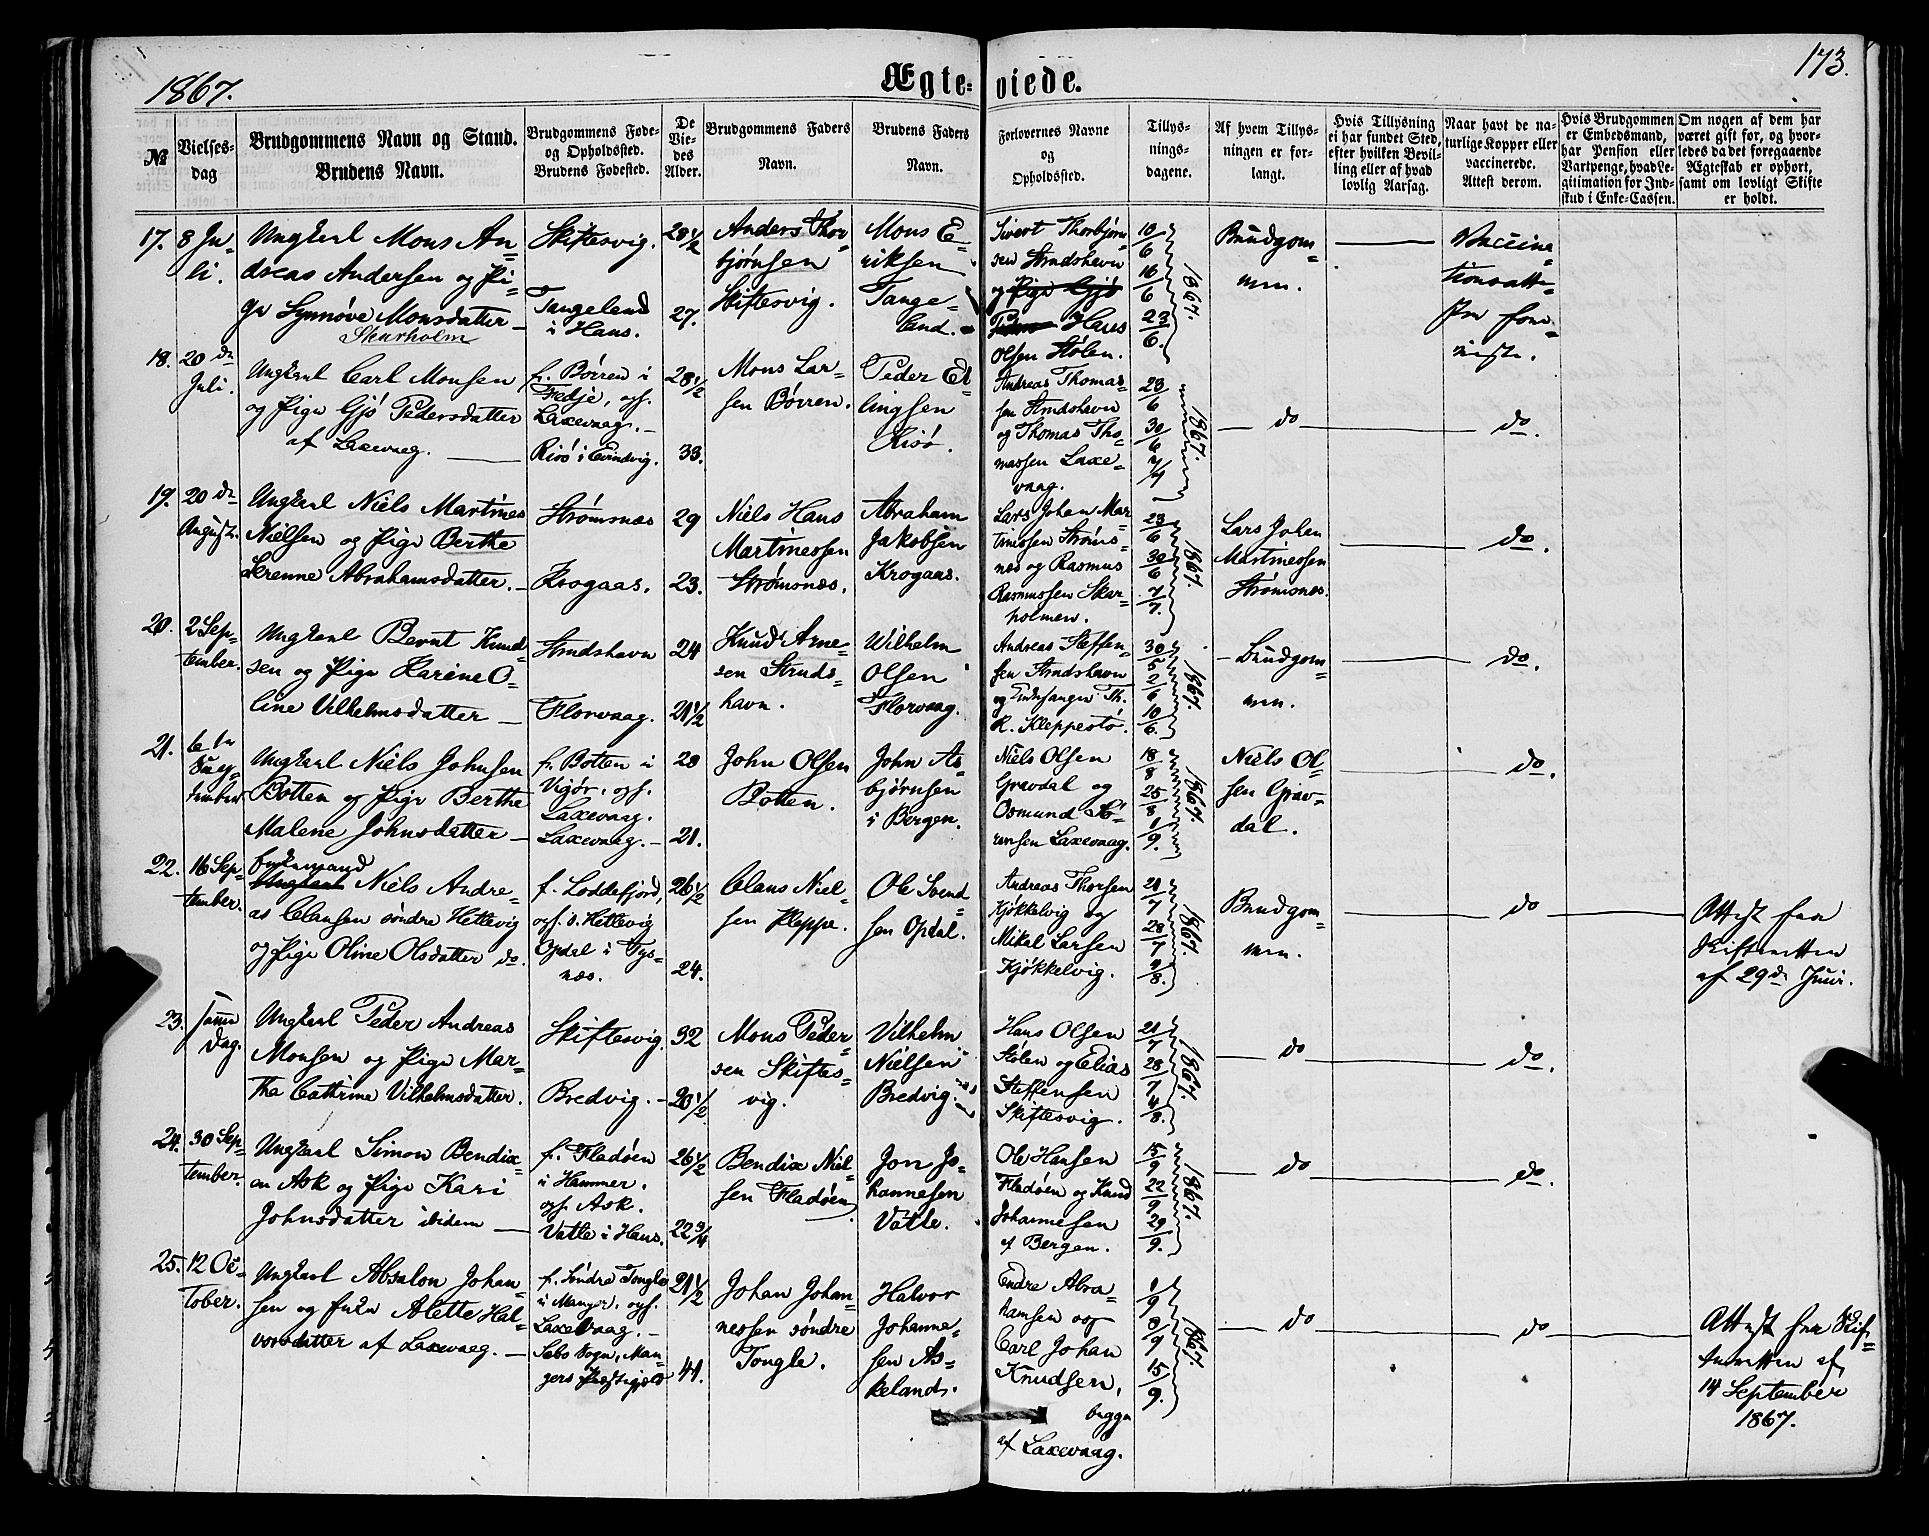 1867.
Ægteviede.
173.
№
Vielsesdag
Brudgommens Navn og Stand.
Brudens Navn.
Brudgommens Føde-
og Opholdssted.
Brudens Fødested.
De
Vie-
des
Alder.
Brudgommens Faders
Navn.
Brudens Faders
Navn.
Forlovernes Navne
og
Opholdssted.
Tillys-
nings-
dagene.
Af hvem Tillys-
ningen er for-
langt.
Hvis Tillysning
ei har fundet Sted,
efter hvilken Bevil-
ling eller af hvad
lovlig Aarsag.
Naar havt de na-
turlige Kopper eller
vaccinerede.
Attest derom.
Hvis Brudgommen
er Embedsmand,
har Pension eller
Vartpenge, hvad Le-
gitimation for Ind-
skud i Enke-Cassen.
Om nogen af dem har
været gift før, og hvor-
ledes da det foregaaende
Ægteskab er ophørt,
samt om lovligt Skifte
er holdt.
17.
8 Ju-
li.
Ungkarl Mons An-
dreas Andersen og Pi-
ge Synnøve Monsdatter
Skarholm
Skiftesvig.
Tangeland
i Haus.
28 1/2
27.
Anders Thor-
bjørnsen
Skiftesvig.
Mons E-
riksen
Tange-
land.
Sivert Thorbjørn-
sen Strudshavn
og Pige Gjø
Hans
Olsen Stølen.
10/6
16/6
23/6.
1867.
Brudgom-
men.
Vaccina-
tionsatte-
ster fore-
viste.
18.
20de
Juli.
Ungkarl Carl Monsen
og Pige Gjø Pedersdatter
af Laxevaag.
f. Børren i
Fedje, ops.
Laxevaag.
Risø i Evindvig.
28 1/2
33.
Mons Lar-
sen Børren.
Peder El-
lingsen
Risø.
Andreas Thomas-
sen Strudshavn
og Thomas Tho-
massen Laxe-
vaag.
23/6
30/6
7/7
1867.
do
do.
19.
20de
August.
Ungkarl Niels Martines
Nielsen og Pige Berthe
Serenne Abrahamsdatter.
Strømsnes
Krogaas.
29
23.
Niels Hans
Martinessen
Strømsnes.
Abraham
Jakobsen
Krogaas.
Lars Johan Mar-
tinessen Strøms-
nes og Rasmus
Rasmussen Skar-
holmen.
23/6
30/6
7/7.
1867.
Lars Johan
Martinessen
Strømsnes.
do.
20.
2 Sep-
tember.
Ungkarl Bernt Knud-
sen og Pige Karine O-
line Vilhelmsdatter
Strudshavn
Florvaag.
24
21 1/2
Knud Arne-
sen Struds-
havn.
Wilhelm
Olsen
Florvaag.
Andreas Steffen-
sen Strudshavn
og Th.
R. Kleppestø.
30/5
2/6
10/6.
1867.
Brudgom-
men.
do.
21.
6te
September
Ungkarl Niels Johnsen
Botten og Pige Berthe
Malene Johnsdatter
f. Botten i
Vigør, ops.
Laxevaag.
Laxevaag.
28
21.
John Olsen
Botten.
John As-
bjørnsen
i Bergen.
Niels Olsen
Gravdal og
Osmund Sø-
rensen Laxevaag.
18/8
25/8
1/9.
1867.
Niels Ol-
sen Grav-
dal.
do.
22.
16 Sep-
tember.
Enkemand
Ungkarl Niels Andre-
as Clausen søndre Hetlevig
og Pige Oline Olsdatter do.
f. Loddefjord,
ops. s. Hetlevig
Opdal i Tys-
næs.
26 1/2
24.
Claus Niel-
sen Kleppe.
Ole Svend-
sen Opdal.
Andreas Thorsen
Kjøkkelvig og
Mikal Larsen
Kjøkkelvig.
21/7
28/7
4/8.
1867.
Brudgom-
men.
do
Attest fra
Skifteretten
af 29de Juni.
23.
samme
Dag.
Ungkarl Peder Andreas
Monsen og Pige Mar-
tha Cathrine Vilhelmsdatter.
Skiftesvig.
Bredvig.
32
20 1/2
Mons Peder-
sen Skiftes-
vig.
Vilhelm
Nielsen
Bredvig.
Hans Olsen
Stølen og Elias
Steffensen
Skiftesvig.
21/7
28/7
4/8.
1867.
do
do.
24.
30 Sep-
tember.
Ungkarl Simon Bendix-
en Ask og Pige Kari
Johnsdatter ibidem
f. Fladøen
i Hammer.
ops. Ask.
Vatle i Haus.
26 1/2
22 3/4
Bendix Niel-
sen Fladøen
Jon Jo-
hannesen
Vatle.
Ole Hansen
Fladøen og Knud
Johannesen
af Bergen.
15/9
22/9
29/9.
1867.
do
do.
25.
12 Oc-
tober.
Ungkarl Absalon Johan-
sen og Enke Alette Hal-
vorsdatter af Laxevaag.
f. Søndre Tongle
i Manger, ops.
Laxevaag.
Sæbø Sogn, Man-
gers Præstegjeld
21 1/2
41.
Johan Johan-
nessen søndre
Tongle.
Halvor
Johanne-
sen As-
keland.
Endre Abra-
hamsen og
Carl Johan
Knudsen,
begge
af Laxevaag.
1/9
8/9
15/9.
1867.
do
do
Attest fra Skif-
teretten af
14 September
1867.